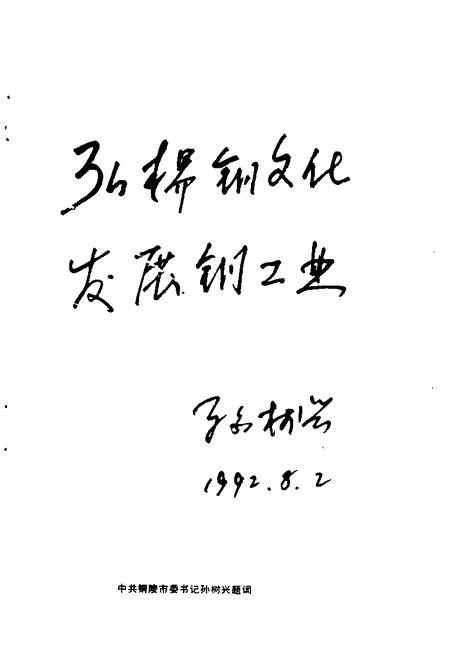 弘楊铜文化
发展铜工业
孙树兴
1992.8.2
中共铜陵市委书记孙树兴题词